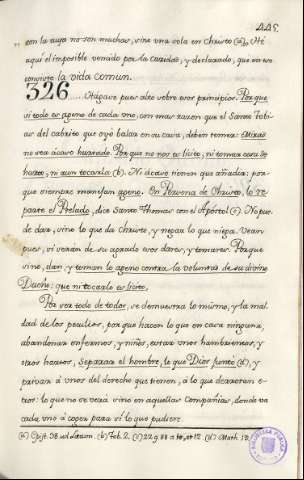 225.
con la suya no son muchas, sino una sola en Christo (a). He
aqui el imposible venado por la caridad, y declarado, que en
convivir la vida comun.
326 .... Otigase pues alto sobre esos principios. Porque
si todo es ageno de cada uno, con mas razon que el Santo Tobi-
as del cabrito que oyò balar en su casa, deben temer: Mirad
no sea acaso hurtado. Porque no nos es licito, ni tomar cosa de
hurto, ni aun tocarla (b). Ni de acaso tienen que añadir: por
que siempre manejan ageno. En Persona de Christo, lo re-
parte el Prelado, dice Santo Thomas con el Apostol (c). No pue-
de dar, sino lo que da Christo, y negar lo que niega. Vean
pues, si usaran de su agrado esos dares, y tomares. Porque
sino, dan, y toman lo ageno contra la voluntad de su divino
Dueño: que ni tocarlo es licito.
Por ser todo de todos, se demuestra lo mismo, y la mal-
dad de los peculios, porque hacen lo que en casa ninguna,
abandonar enfermos, y niños, estar unos hambrientos, y
otros hartos, separar el hombre, lo que Dios juntò (d), y
privar à unos del derecho que tienen, à lo que dexaron
otros: lo que no se verà sino en aquellas Compañias, donde va
cada uno à coger para sì lo que pudiere.
(a) Epist. 38. ad Laetum. (b) Tob. 2. (c) 22 q. 88 a 12. (d) Math. 19.
BIBLIOTECA PUBLICA